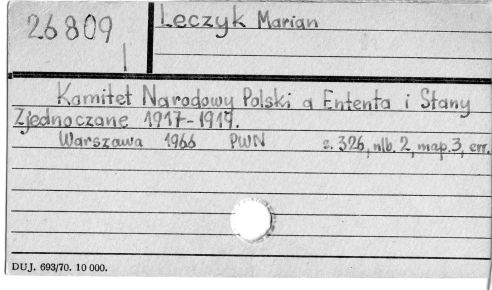 26809
Leczyk Marian
Komitet Narodowy Polski a Ententa i Stany
Zjednoczone 1917-1919.
Warszawa 1966 PWN s. 326, nlb. 2, map. 3, err.
DUJ. 693/70. 10 000.